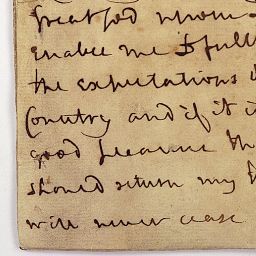 great God whom
enable me to full
the expectations
Country and if it
good pleasure th
should return my
will never cease